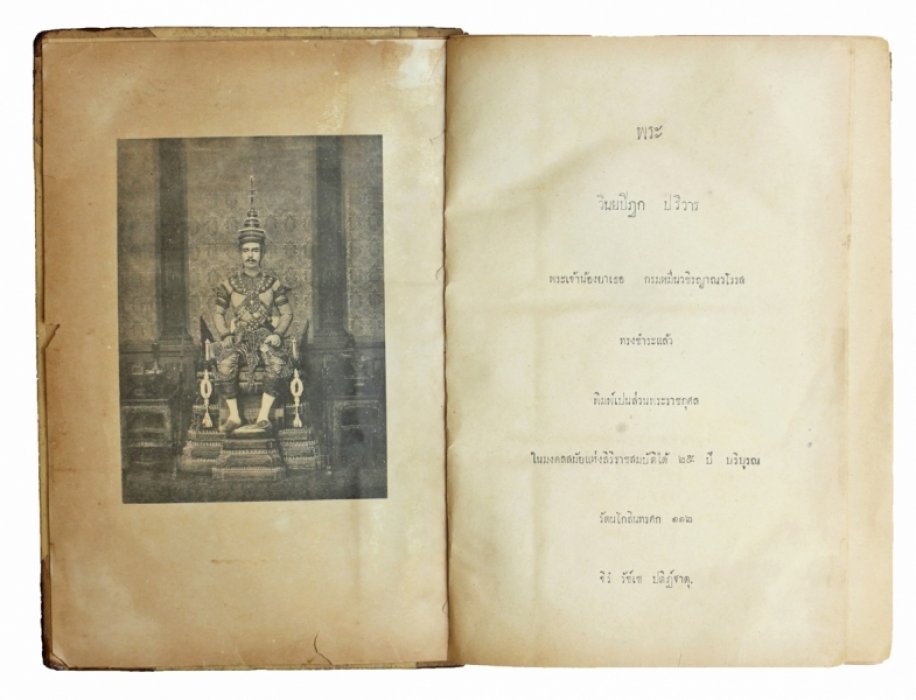 พระ
วินยปิฎก ปริวาร
พระเจ้าน้องยาเธอ กรมหมื่นวชิรญาณวโรรส
ทรงชำระแล้ว
พิมพ์เปนส่วนพระราชกุศล
ในมงคลสมัยแห่งสิริราชสมบัติได้ ๒๕ ปี บริบูรณ
รัตนโกสินทรศก ๑๑๒
จิรํ รัช์เช ปติฏ์ฐาตุ.